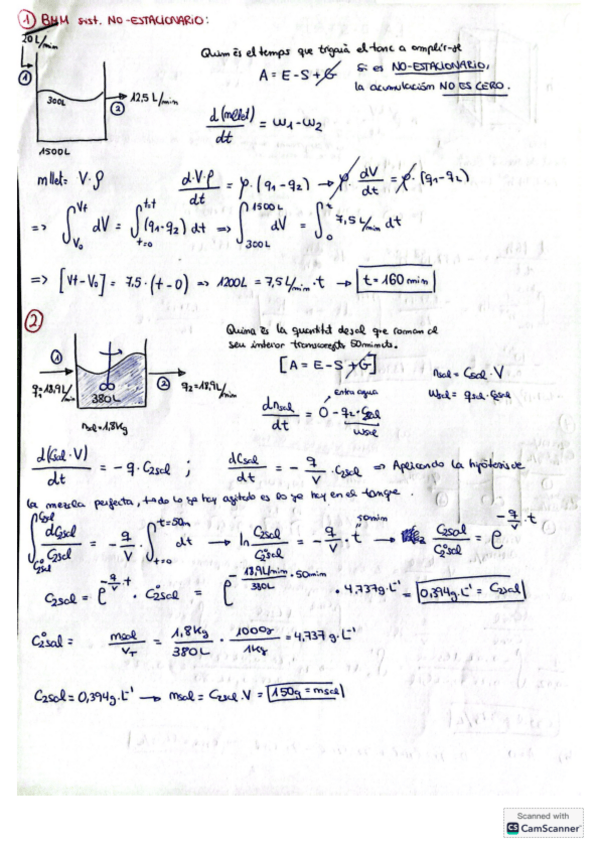 ① BHM sist. NO-ESTACIONARIO:
20 L/min
Quin és el temps que trigarà el tanc a omplir-se
① A = E - S + G Si es NO-ESTACIONARIO,
300L ② 12,5 L/min la acumulación NO ES CERO.
1500L
d(mllet)/dt = w1 - w2
mllet = V·ρ d·V·ρ/dt = ρ·(q1-q2) → ρ·dV/dt = ρ·(q1-q2)
=> ∫_{V0}^{Vt} dV = ∫_{t=0}^{t,t} (q1-q2) dt => ∫_{300L}^{1500L} dV = ∫_0^t 7,5 L/min dt
=> [Vt-V0] = 7.5·(t-0) => 1200L = 7,5 L/min·t → t = 160 min
②
Quina és la quantitat de sal que roman al
seu interior transcorreguts 50 minuts.
① ② [A = E - S + G]
q2=18,9L/min
380L
msal=1,8Kg
nsal = Csal·V
wsal = qsal·Csal
Entra agua
dnsal/dt = 0 - q2·Csal
wsal
d(Csal·V)/dt = -q·C2sal ; dCsal/dt = -q/V·C2sal => Aplicando la hipótesis de
la mezcla perfecta, todo lo que hay agitado es lo que hay en el tanque.
∫_{C°2sal}^{C2sal} dC2sal/C2sal = -q/V·∫_{t=0}^{t=50m} dt → ln C2sal/C°2sal = -q/V·t → C2sal/C°2sal = e^{-q/V·t}
50min
C2sal = e^{-q/V·t}·C°2sal = e^{-18,9L/min/380L·50min}·4.737g·L⁻¹ = 0,394g·L⁻¹ = C2sal
C°2sal = msal/VT = 1,8Kg/380L · 1000g/1Kg = 4,737 g·L⁻¹
C2sal = 0,394g·L⁻¹ → msal = C2sal·V = 150g = msal
Scanned with
CS CamScanner